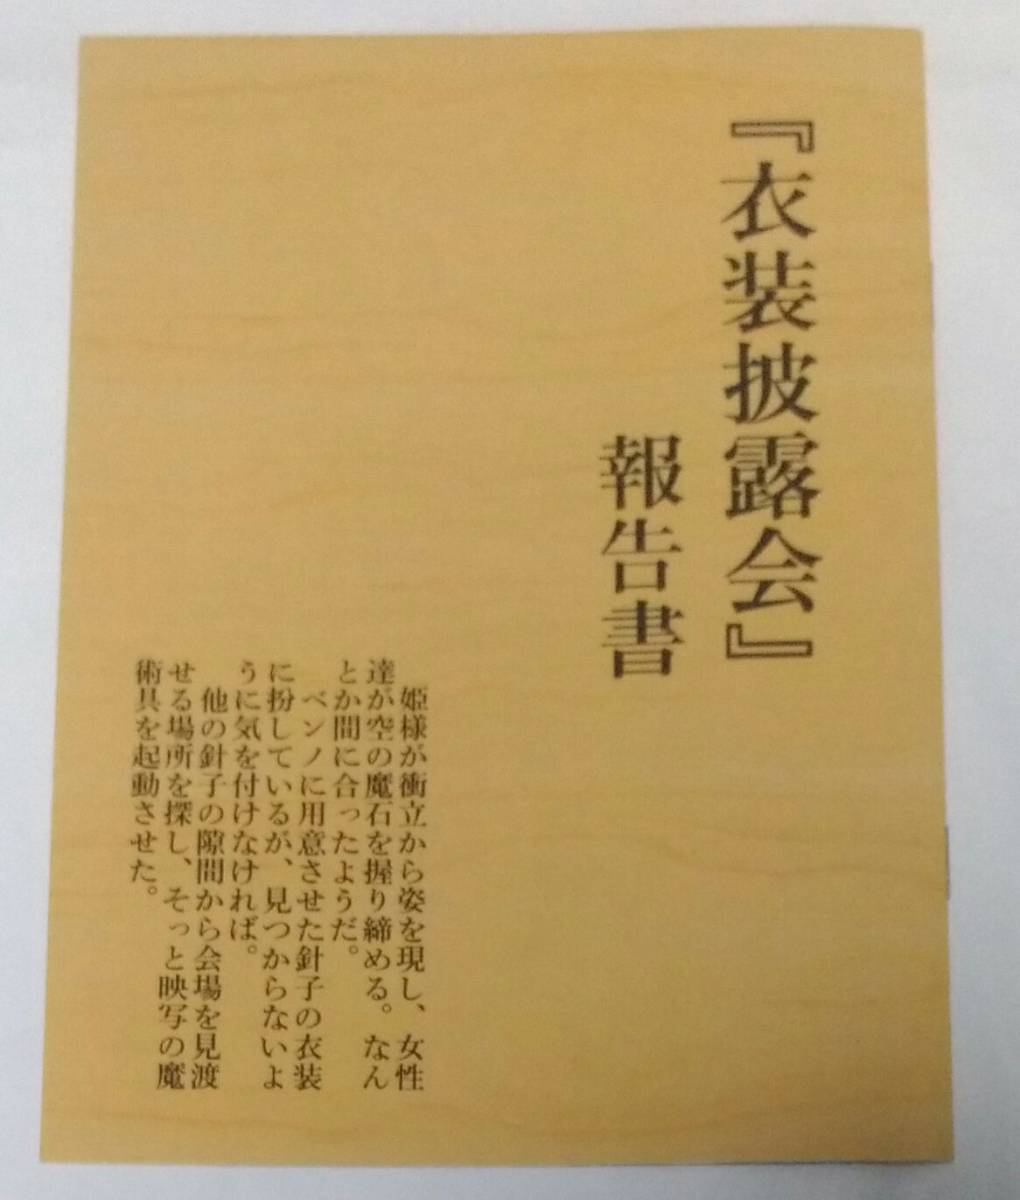 『衣装披露会』
報告書
姫様が衝立から姿を現し、女性
達が空の魔石を握り締める。なん
とか間に合ったようだ。
ベンノに用意させた針子の衣装
に扮しているが、見つからないよ
うに気を付けなければ。
他の針子の隙間から会場を見渡
せる場所を探し、そっと映写の魔
術具を起動させた。